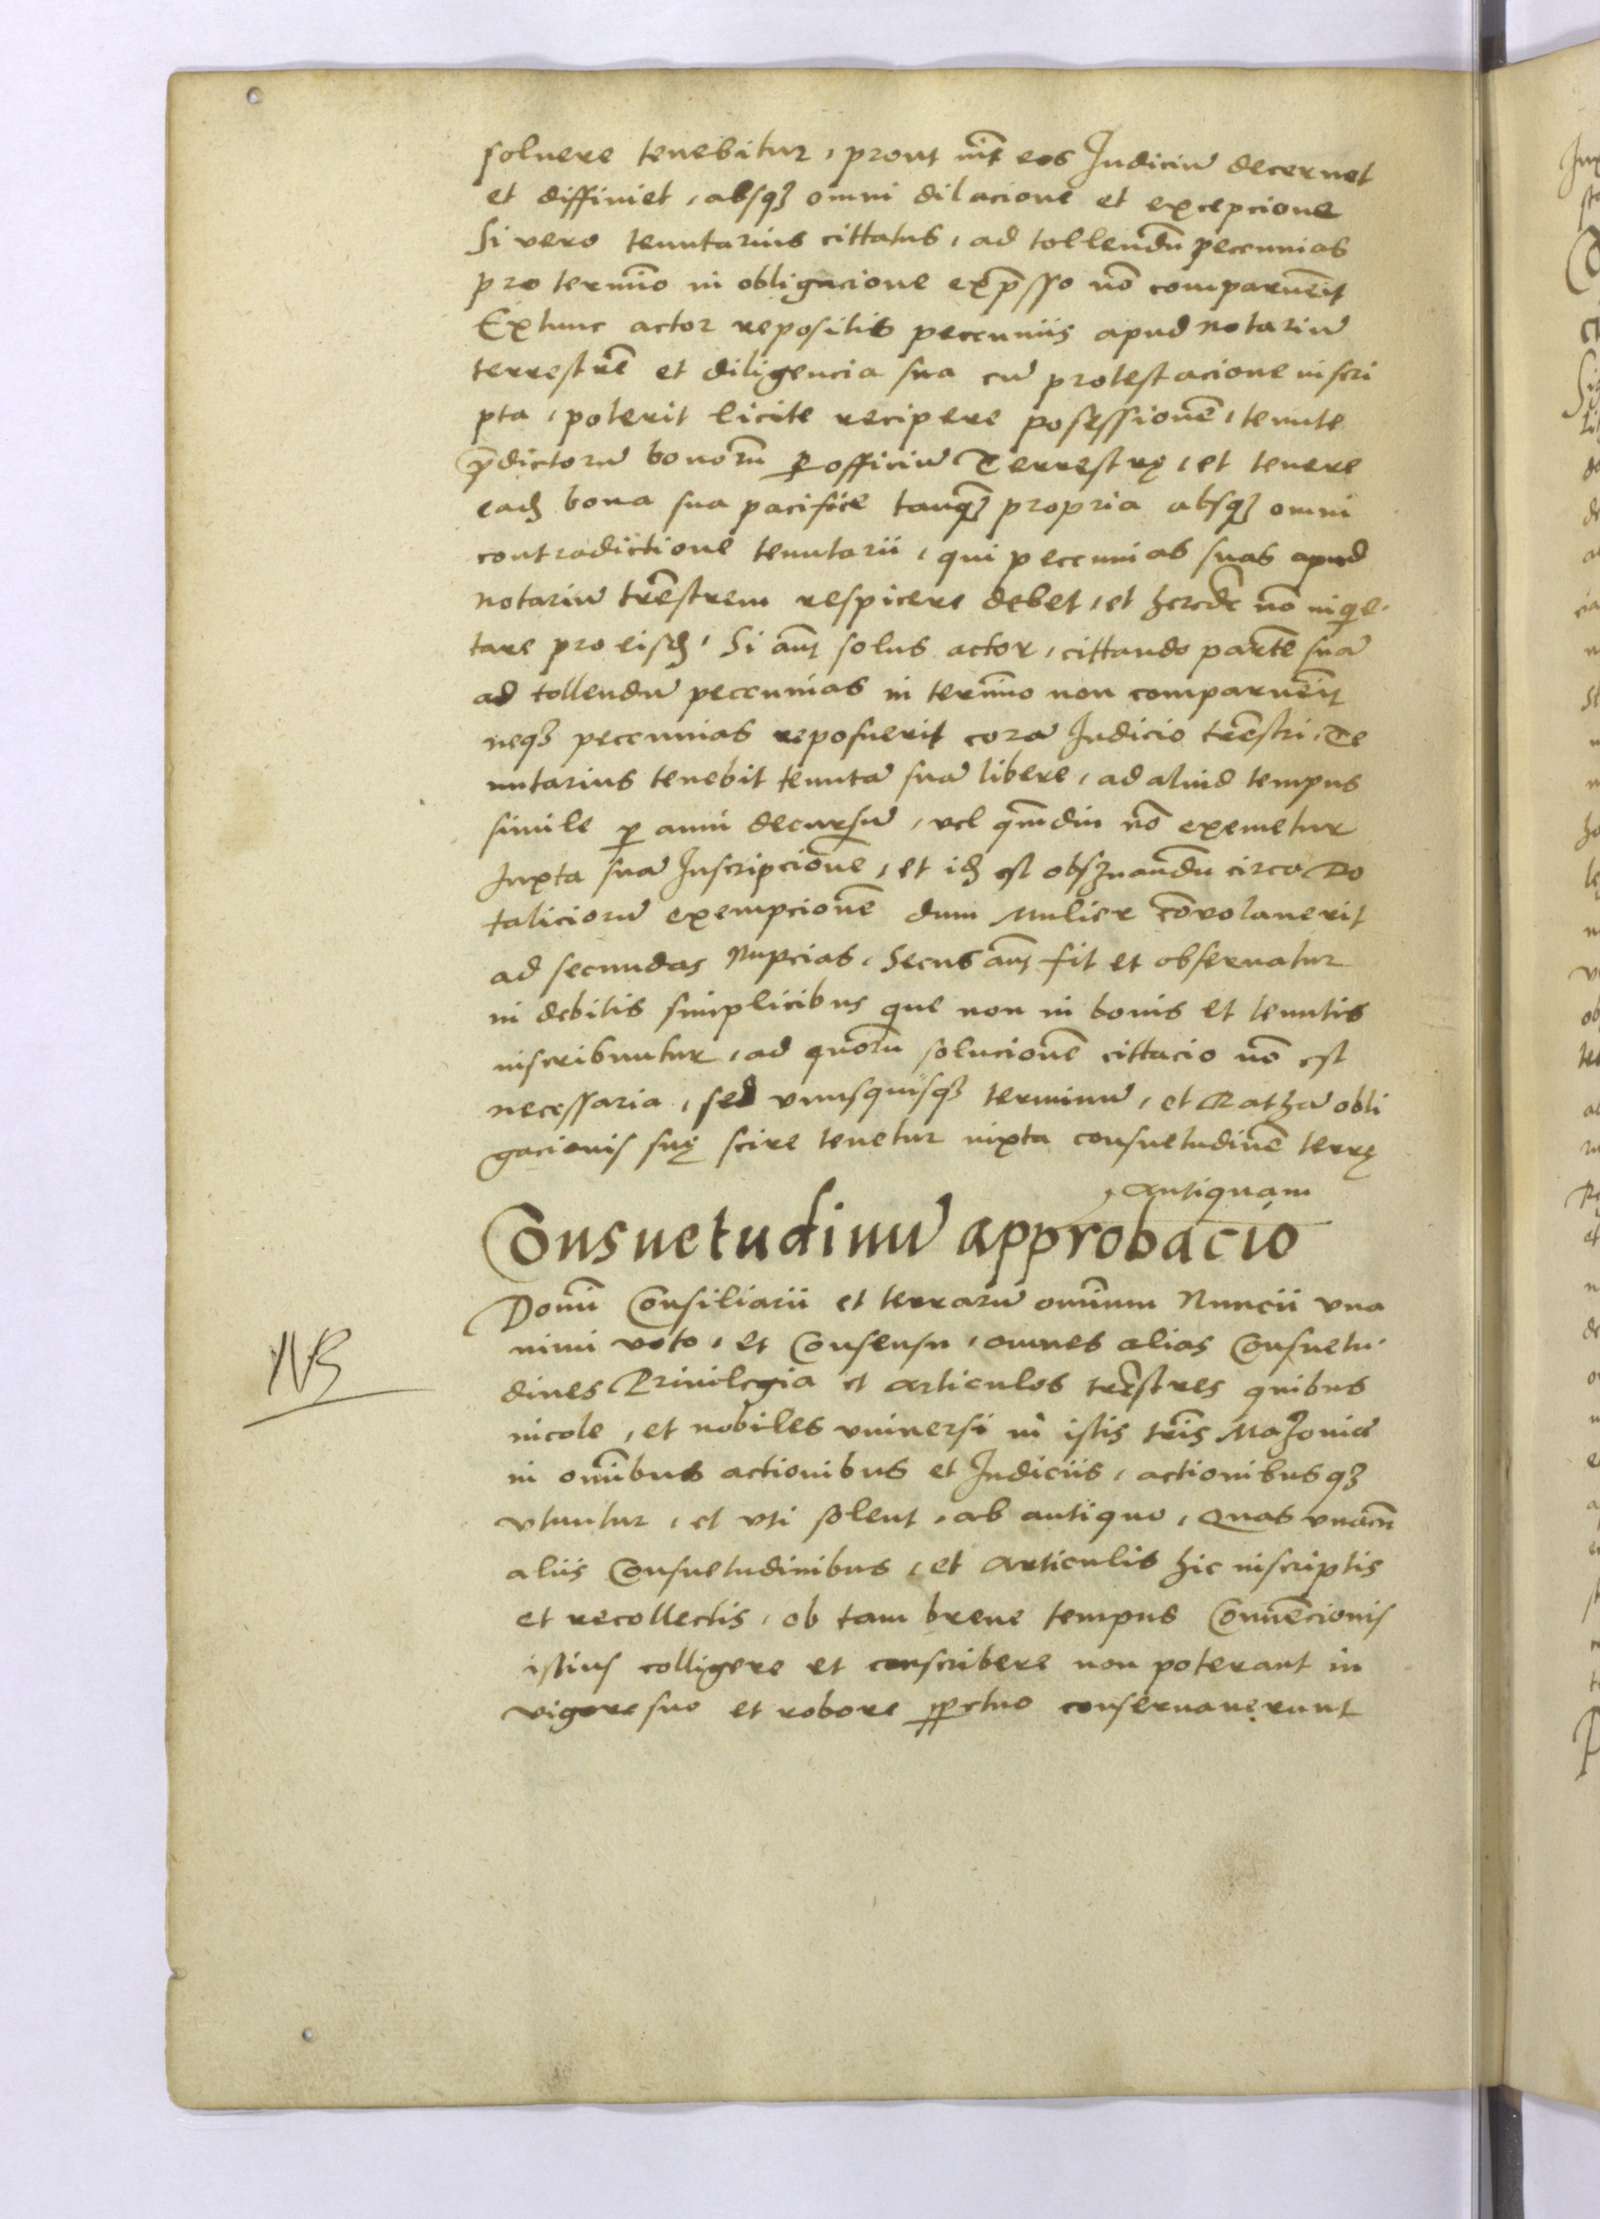 soluere tenebitur, prout int̃ eos Iudiciũ decernet
et diffiniet, absqꝫ omni dilacione et excepcione
Si vero tenutarius cittatus, ad tollendũ peccunias
pro termĩo in obligacione exp̃sso nõ comparuẽit
Extunc actor repositis peccuniis apud notariũ
terrestrẽ et diligencia sua cũ protestacione inscri
pta, poterit licite recipere posessionẽ, tenute
p̃dictorũ bonorũ ꝑ officiũ Terrestrę, et tenere
eadꝫ bona sua pacifice tanqꝫ propria absqꝫ omni
contradictione tenutarii, qui peccunias suas apud
notariũ trẽstrem respicere debet, et heredẽ nõ inqie-
tare pro eisdꝫ, Si aũt solus actor, cittando partẽ suã
ad tollendũ peccunias in termĩo non comparuẽit
neqꝫ peccunias reposuerit corã Iudicio trẽstri, Te
nutarius tenebit tenutã suã libere, ad aliud tempus
simile ꝑ anni decursũ, vel qm̃diu nõ exemetur
Iuxta suã Inscripcionẽ, et idꝫ est obsꝫuandũ circa Do
taliciorũ exempcionẽ dum Mulier cõvolauerit
ad secundas Nupcias, Secus aũt fit et obseruatur
in debitis simplicibus que non in bonis et tenutis
inscribuntur, ad quorũ solucionẽ cittacio nõ est
necessaria, sed vnusquisqꝫ terminũ, et Rathã obli
gacionis suę scire tenetur iuxta consuetudinẽ terrę
, antiquam
Consuetudinũ approbacio
Domĩ Consiliarii et terrarũ omĩum Nuncii vna
nimi voto, et Consensu, omnes alias Consuetu-
dines Priuilegia et articulos trẽstres quibus
incole, et nobiles vniuersi in istis trĩs Mazouiæ
in omĩbus actionibus et Iudiciis, actionibusqꝫ
vtuntur, et vti solent, ab antiquo, Quas vnacũ
aliis Consuetudinibus, et articulis hic inscriptis
et recollectis, ob tam breue tempus Conuẽcionis
istius colligere et conscribere non poterant in
vigore suo et robore ꝑpetuo conseruauerunt
NB